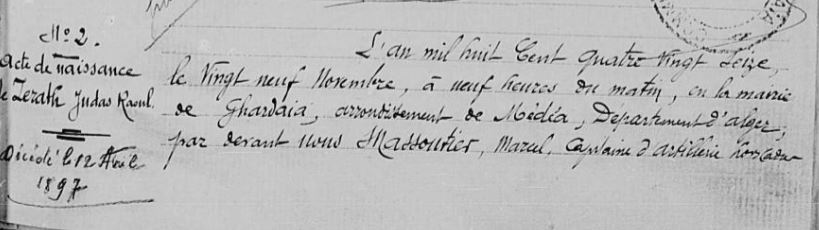 N° 2.
Acte de naissance
de Zerath Judas Raoul.
Décédé le 12 Avril
1897
L'an mil huit Cent quatre vingt Seize,
le Vingt neuf Novembre, à neuf heures du matin, en la mairie
de Ghardaia, arrondissement de Médéa, Département d'alger,
par devant nous Massoutier, Marcel, Capitaine d'artillerie hors cadre